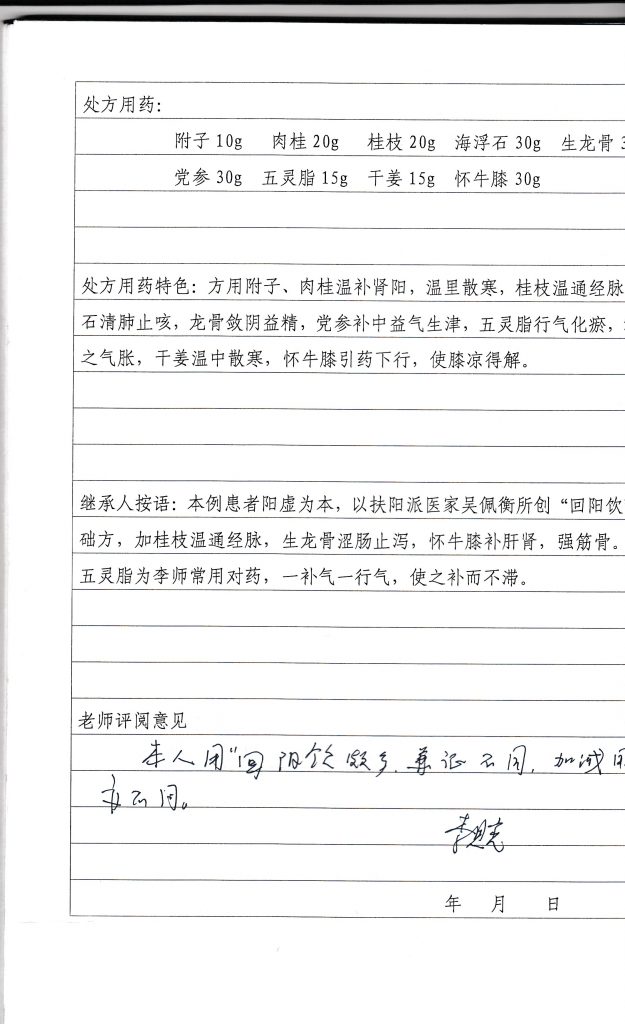 处方用药：
附子 10g 肉桂 20g 桂枝 20g 海浮石 30g 生龙骨
党参 30g 五灵脂 15g 干姜 15g 怀牛膝 30g
处方用药特色：方用附子、肉桂温补肾阳，温里散寒，桂枝温通经脉
石清肺止咳，龙骨敛阴益精，党参补中益气生津，五灵脂行气化瘀，
之气胀，干姜温中散寒，怀牛膝引药下行，使膝凉得解。
继承人按语：本例患者阳虚为本，以扶阳派医家吴佩衡所创“回阳饮
础方，加桂枝温通经脉，生龙骨涩肠止泻，怀牛膝补肝肾，强筋骨。
五灵脂为李师常用对药，一补气一行气，使之补而不滞。
老师评阅意见
本人用“回阳饮颇多，兼证不同，加减用
亦不同。
年 月 日